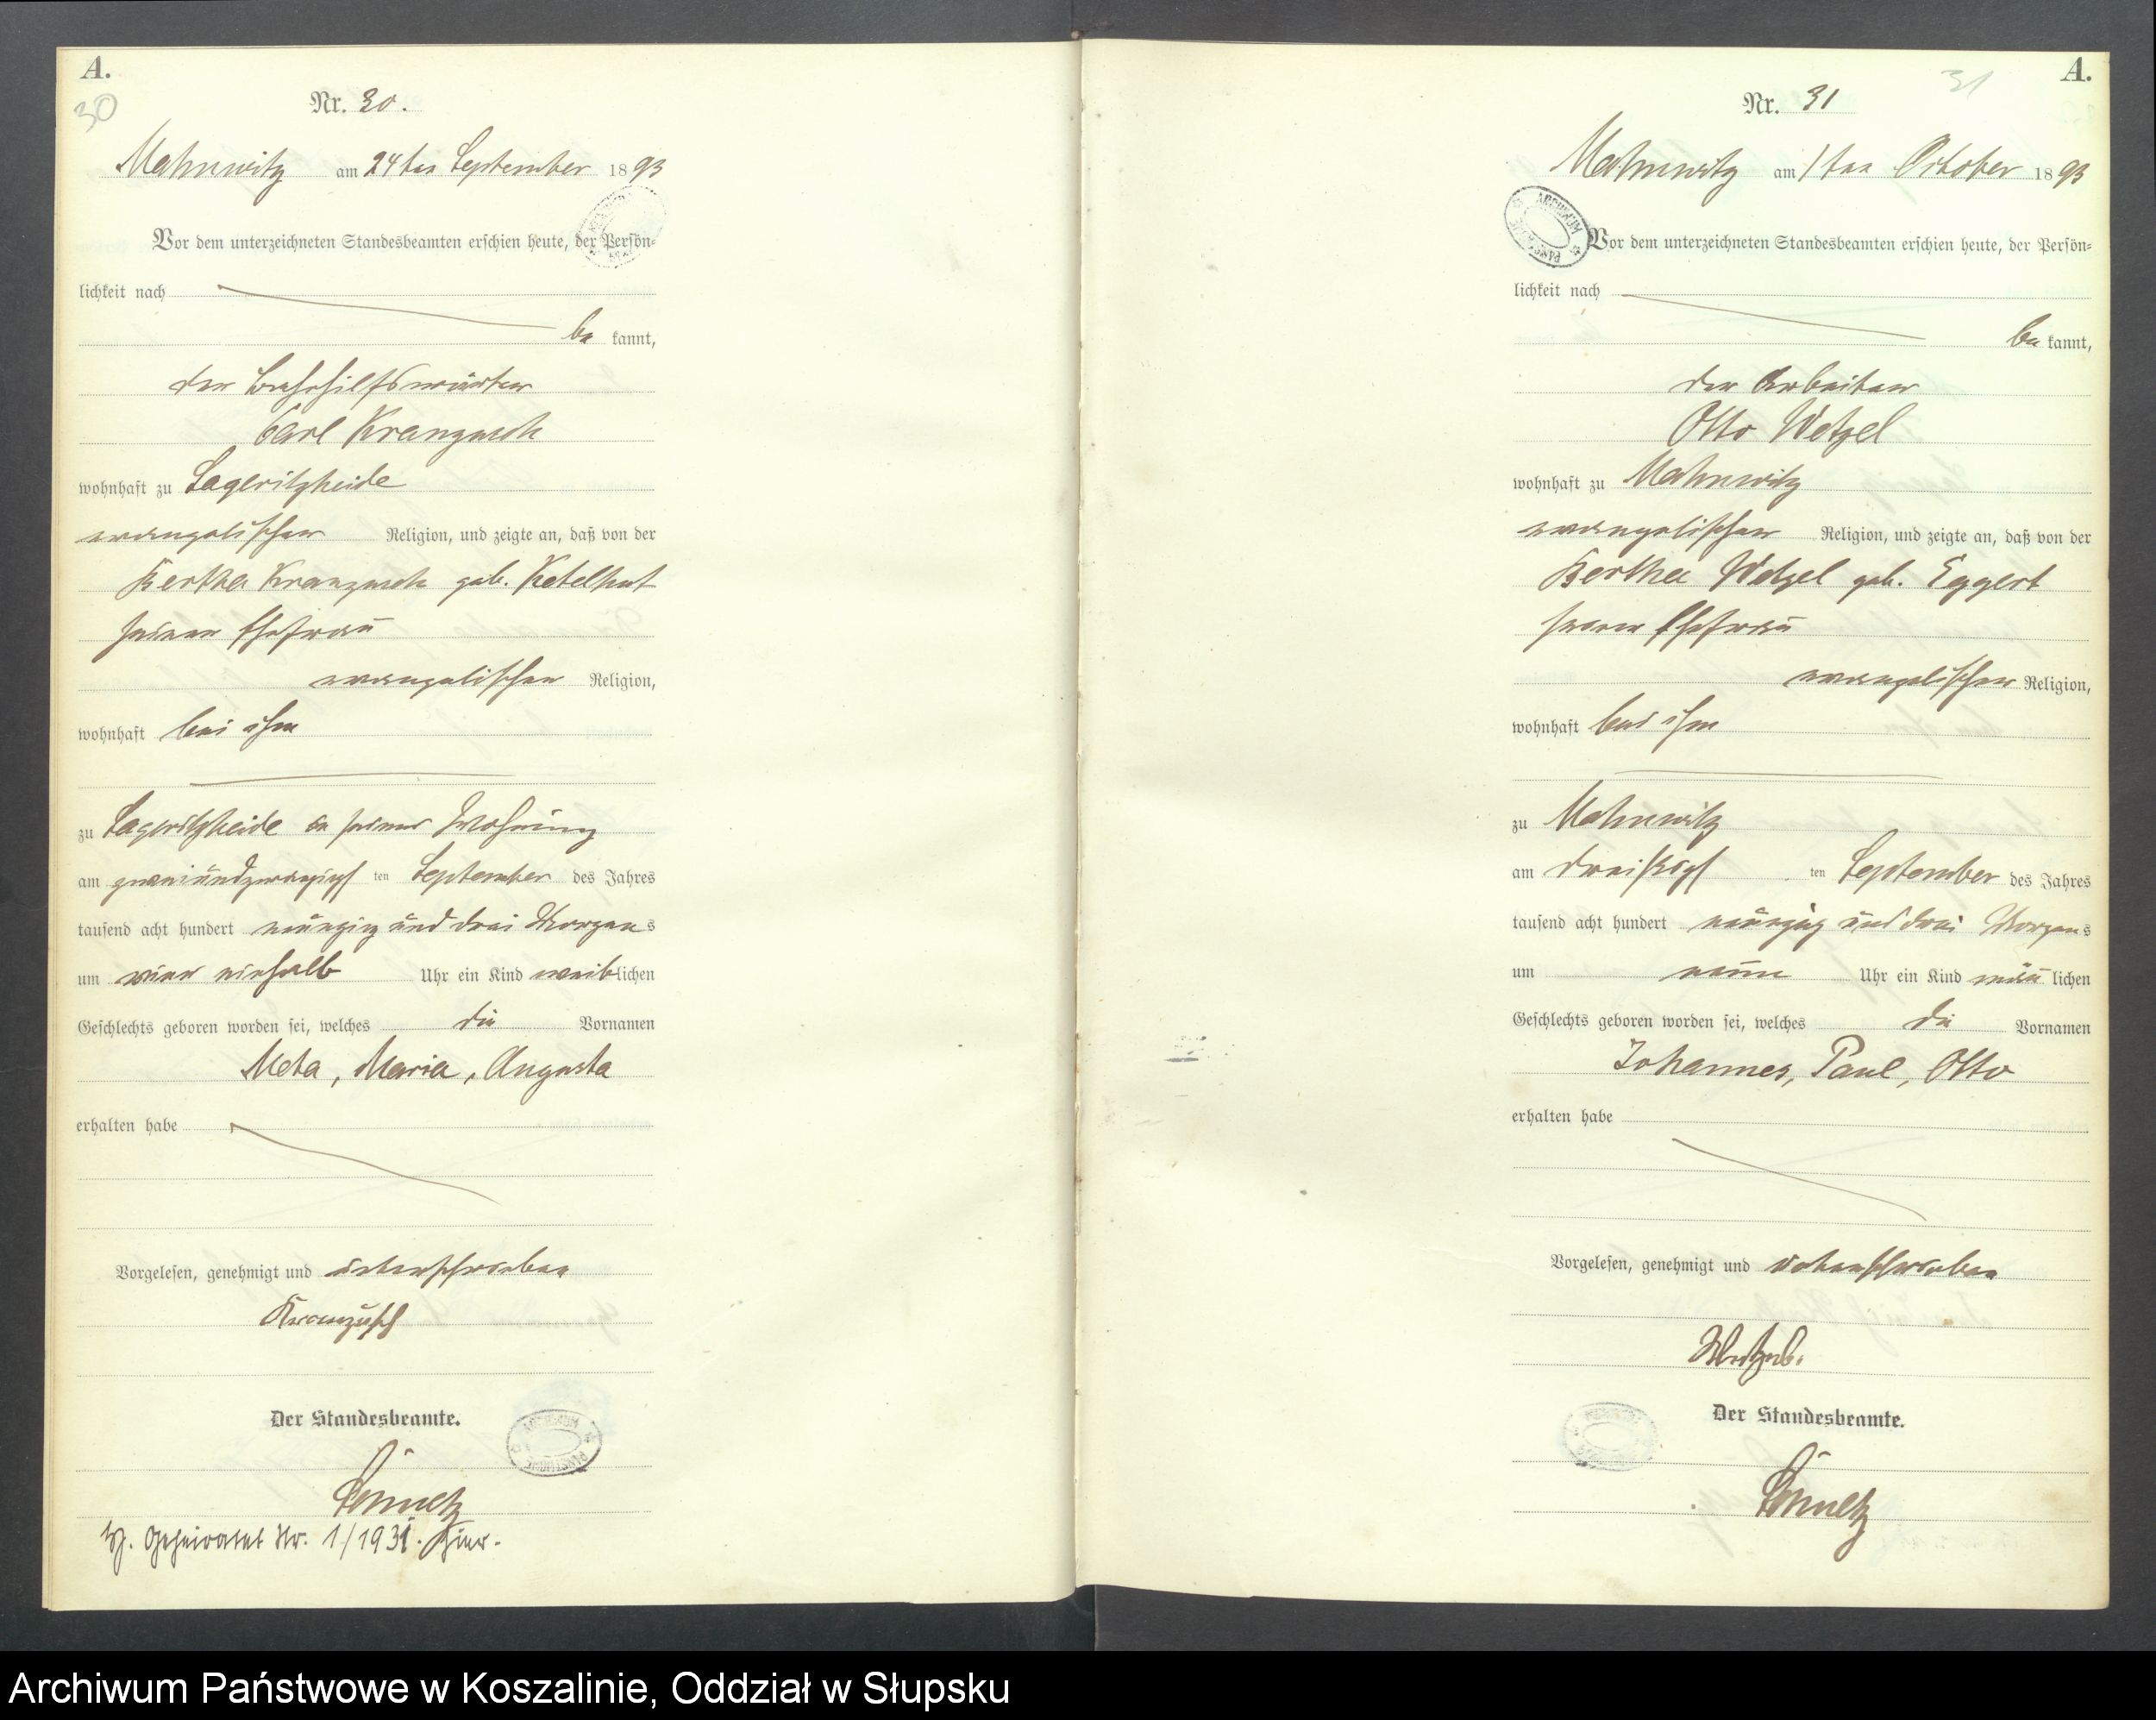 A.
30
Nr. 30.
Mahnwitz am 24ten September 1893
Vor dem unterzeichneten Standesbeamten erschien heute, der Persön-
lichkeit nach
be kannt,
der
Carl Kranzusch
wohnhaft zu Lageritzheide
evangelischer Religion, und zeigte an, daß von der
Bertha Kranzusch geb. Ketelhut
seiner Ehefrau
evangelischer Religion,
wohnhaft bei ihm
zu Lageritzheide in seiner Wohnung
am zweiundzwanzigst ten September des Jahres
tausend acht hundert neunzig und drei Morgens
um vier einhalb Uhr ein Kind weiblichen
Geschlechts geboren worden sei, welches die Vornamen
Meta, Maria, Augusta
erhalten habe
Vorgelesen, genehmigt und unterschrieben
Kranzusch
Der Standesbeamte.
Schultz
Geheiratet Nr. 1/1931. hier.
A.
31
Nr. 31
Mahnwitz am 1ten October 1893
ARCHIWUM PAŃSTWOWE
Vor dem unterzeichneten Standesbeamten erschien heute, der Persön-
lichkeit nach
be kannt,
der Arbeiter
Otto Wetzel
wohnhaft zu Mahnwitz
evangelischer Religion, und zeigte an, daß von der
Bertha Wetzel geb. Eggert
seiner Ehefrau
evangelischer Religion,
wohnhaft bei ihm
zu Mahnwitz
am dreißigst ten September des Jahres
tausend acht hundert neunzig und drei Morgens
um neun Uhr ein Kind männlichen
Geschlechts geboren worden sei, welches die Vornamen
Johannes, Paul, Otto
erhalten habe
Vorgelesen, genehmigt und unterschrieben
Wetzel.
Der Standesbeamte.
Schultz
Archiwum Państwowe w Koszalinie, Oddział w Słupsku